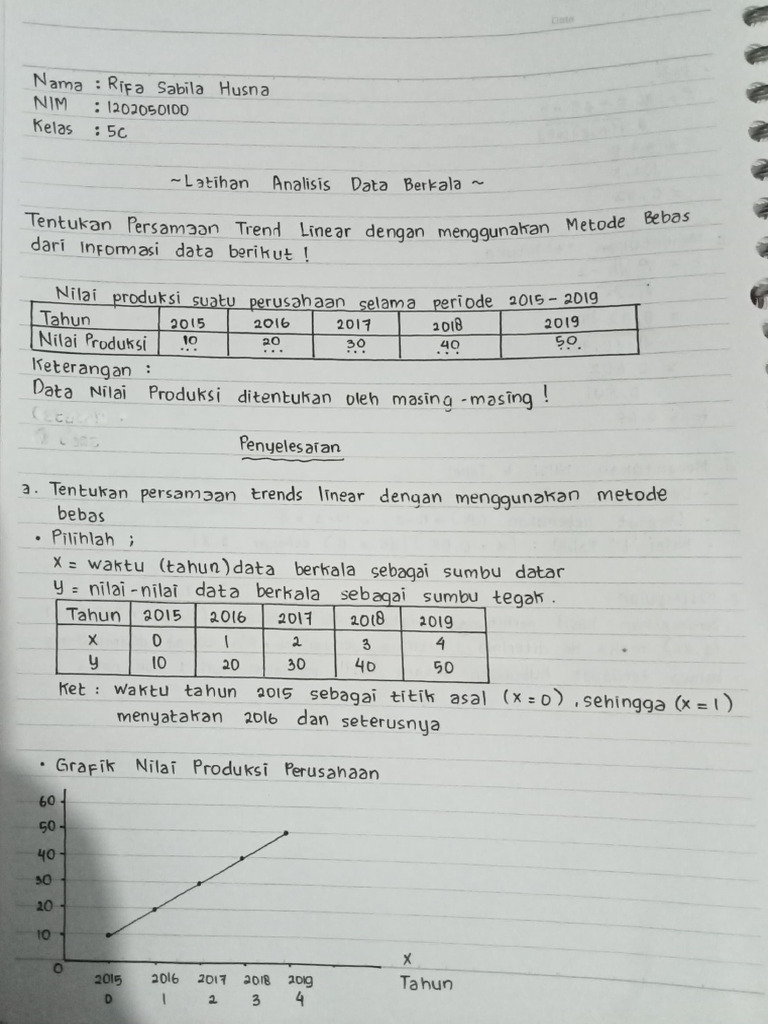 Date
Nama : Rifa Sabila Husna
NIM : 1202050100
Kelas : 5C
~Latihan Analisis Data Berkala ~
Tentukan Persamaan Trend Linear dengan menggunakan Metode Bebas
dari informasi data berikut !
Nilai produksi suatu perusahaan selama periode 2015 - 2019
Tahun 2015 2016 2017 2018 2019
Nilai Produksi 10 20 30 40 50
Keterangan :
Data Nilai Produksi ditentukan oleh masing - masing !
Penyelesaian
a. Tentukan persamaan trends linear dengan menggunakan metode
bebas
• Pilihlah ;
x = waktu (tahun) data berkala sebagai sumbu datar
y = nilai - nilai data berkala sebagai sumbu tegak.
Tahun 2015 2016 2017 2018 2019
x 0 1 2 3 4
y 10 20 30 40 50
Ket : waktu tahun 2015 sebagai titik asal (x = 0), sehingga (x = 1)
menyatakan 2016 dan seterusnya
• Grafik Nilai Produksi Perusahaan
60
50
40
30
20
10
0
x
2015 2016 2017 2018 2019 Tahun
0 1 2 3 4